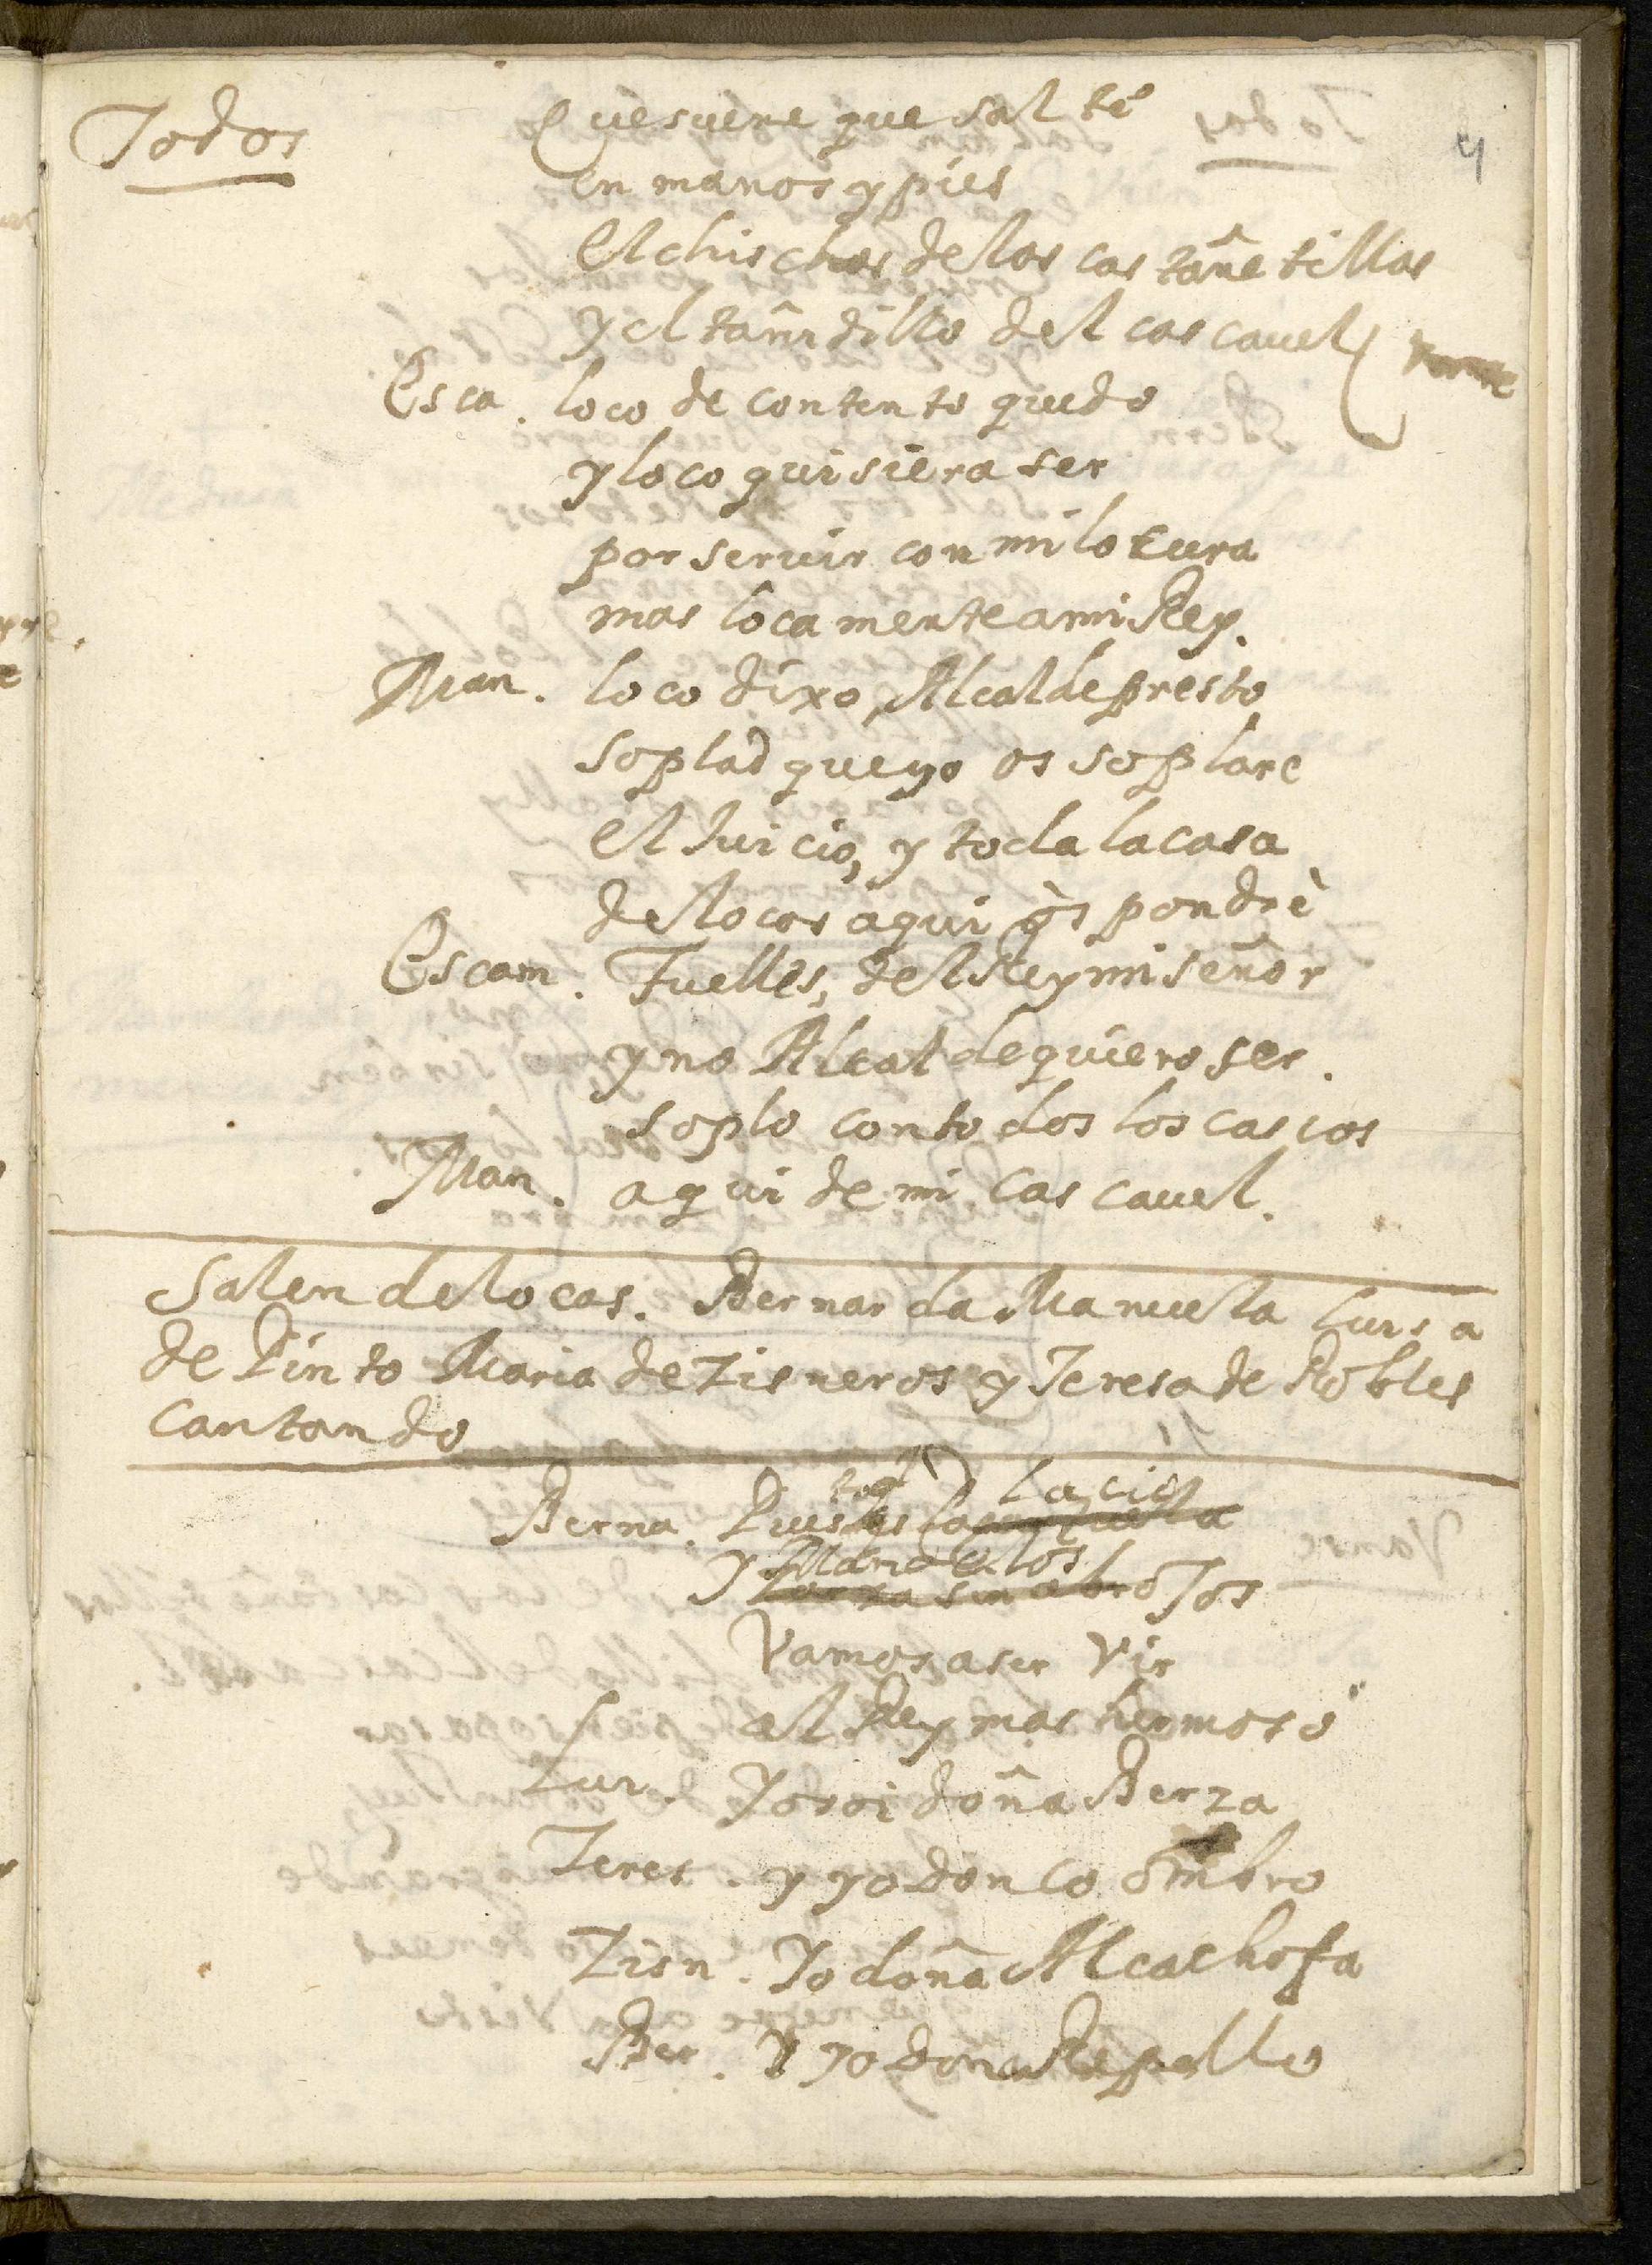 4
Todos Que suene que salte
en manos y pies
El chis chas de las castañetillas
y el tañidillo del cascauel
Esca. loco de contento quedo
y loco quisiera ser
por seruir con mi locura
mas locamente a mi Rey.
Man. loco dixo, Alcalde presto
soplad que yo os soplare
El Juicio, y toda la casa
de locos aqui os pondrè
Escam. Fuelles, del Rey mi señor
y no Alcalde quiero ser.
soplo con todos los cascos
Man. aqui de mi cascauel.
Salen de locas. Bernarda Manuela Luisa
de Pinto Maria de Zisneros y Teresa de Robles
Cantando
Berna. Pues
y
Vamos a ser vir
al Rey mas hermoso
Lui. Yo soi doña Berza
Teres. y yo don Cohombro
Zisn. Yo doña Alcachofa
Ber. Y yo dona Repollo